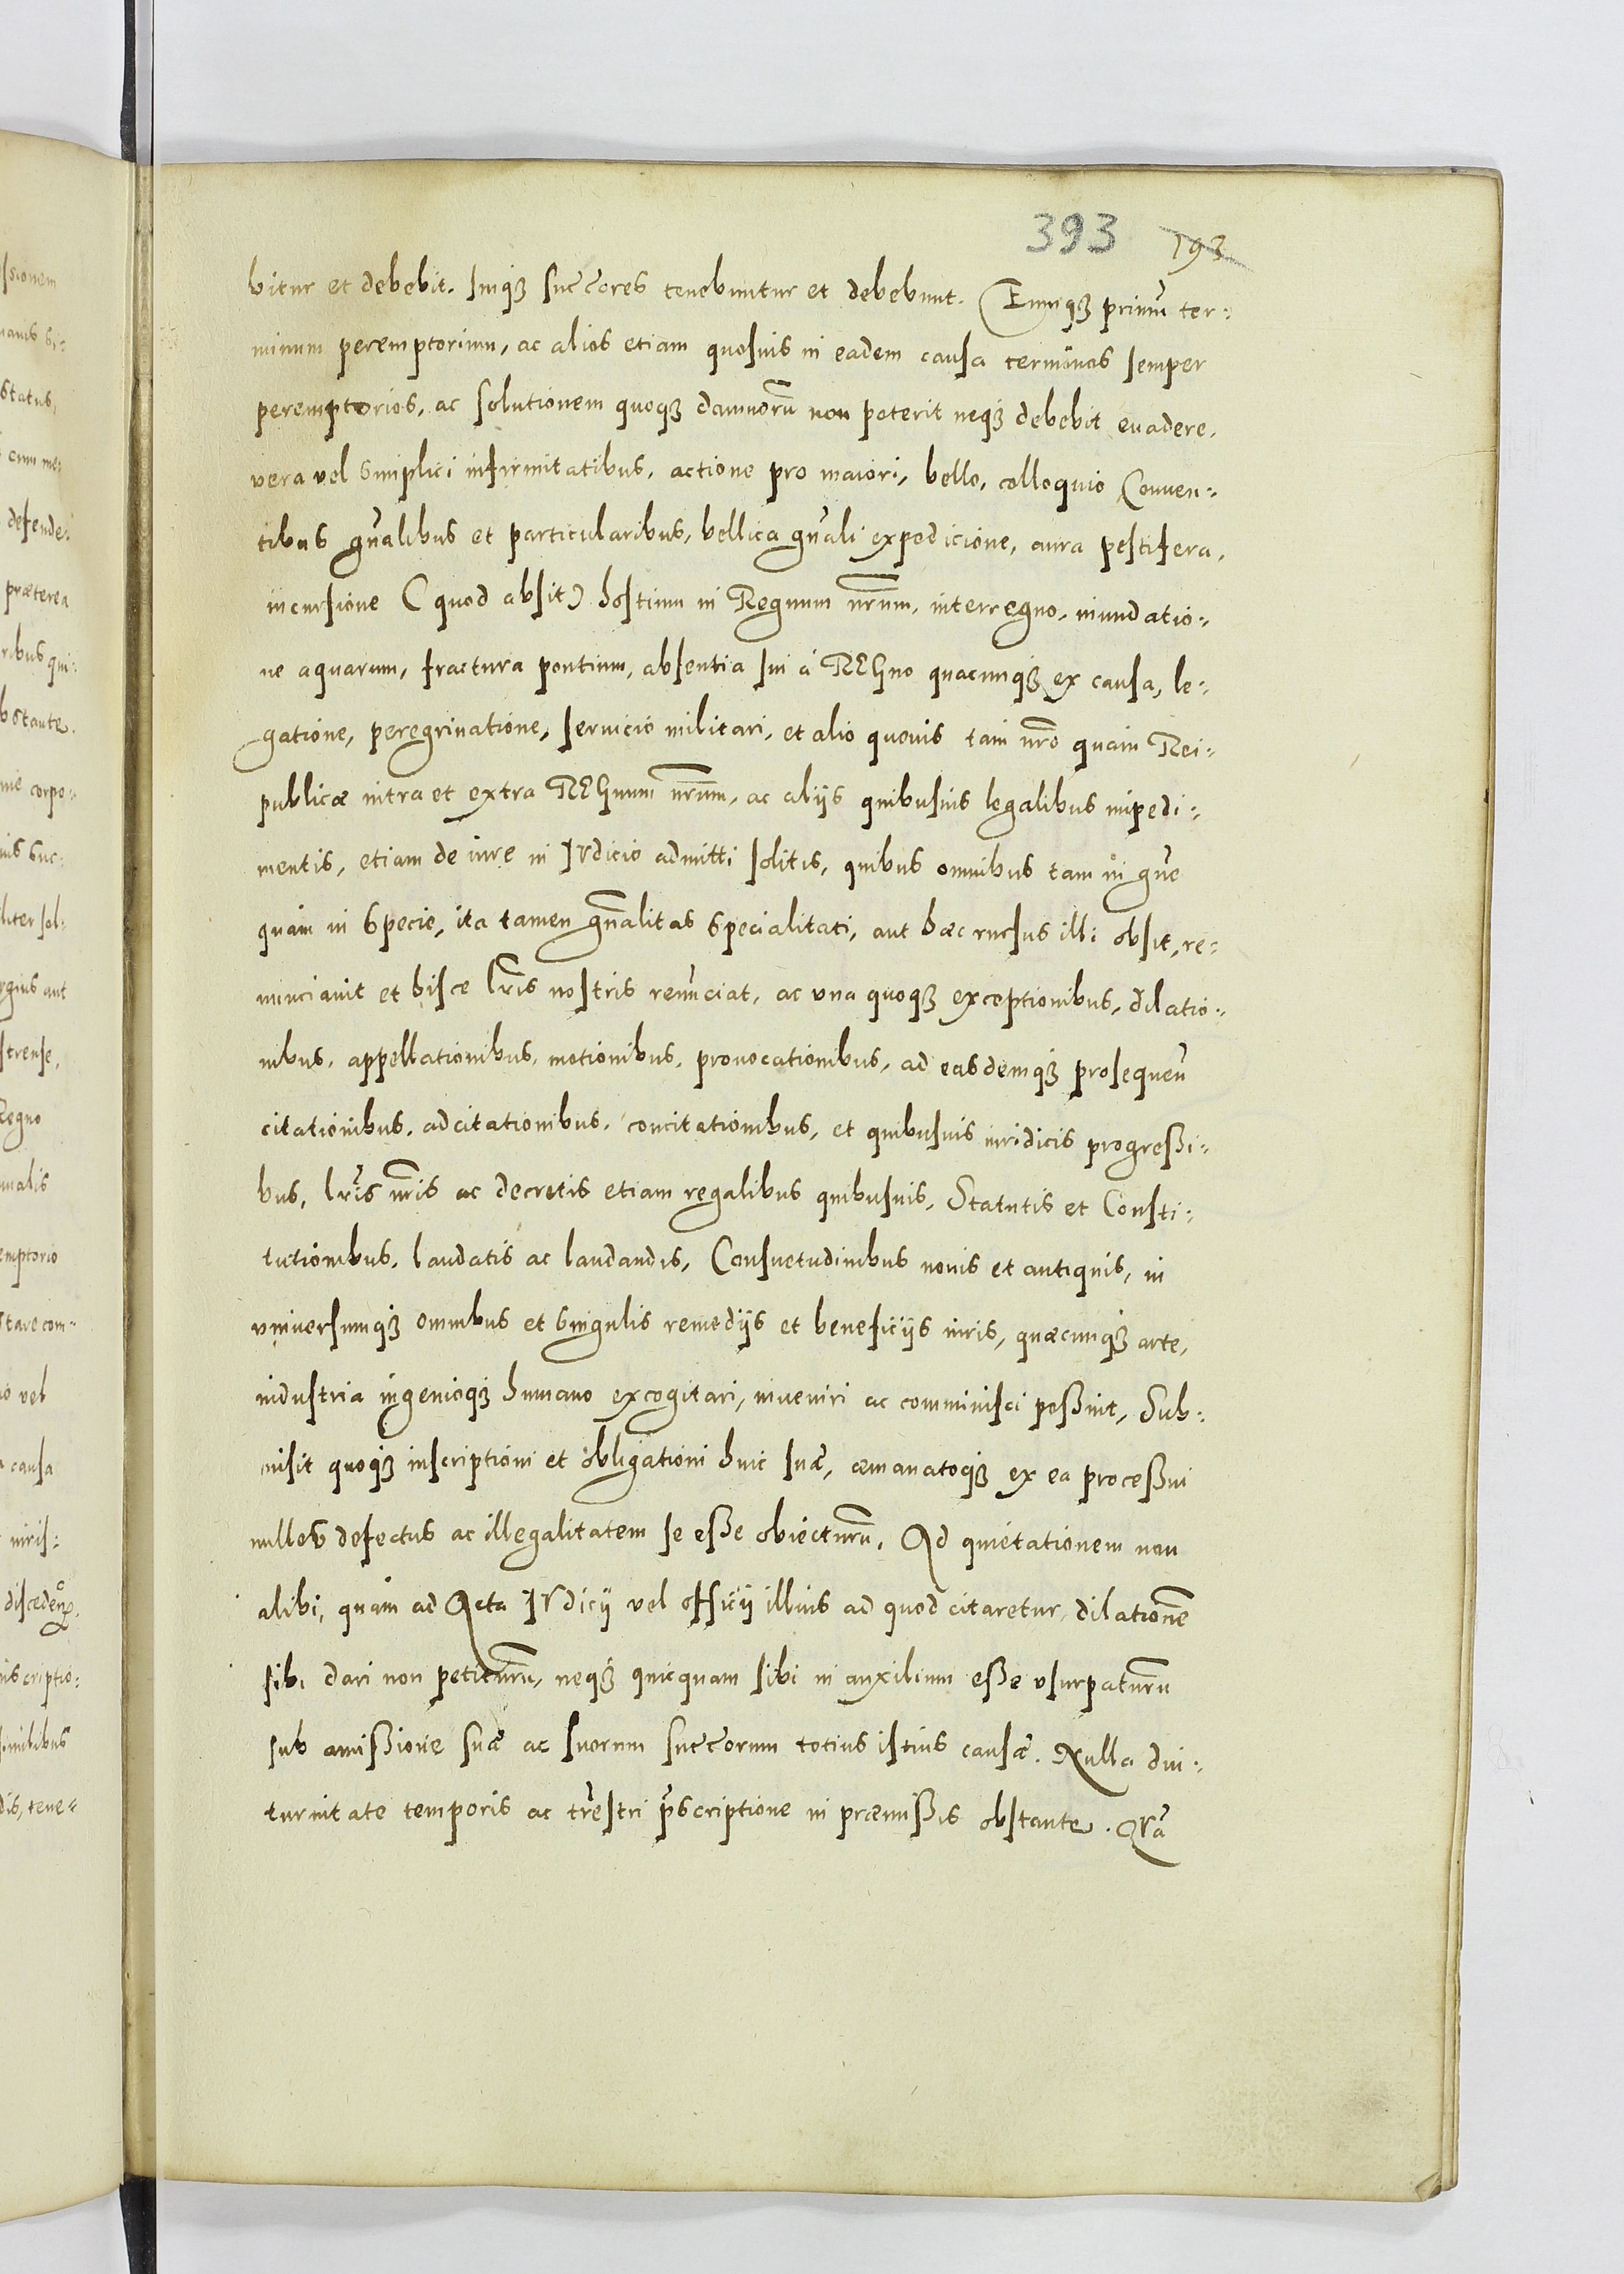 393 193
bitur et debebit. suiq3 succores tenebuntur et debebunt. Eumq3 primũ ter:
minum peremptorium, ac alios etiam quosuis in eadem causa terminos semper
peremptorios, ac solutionem quoq3 damnorũ non poterit neq3 debebit euadere,
vera vel simplici infirmitatibus, actione pro maiori, bello, colloquio Conuen:
tibus gñalibus et particularibus, bellica gñali expedicione, aura pestifera,
incursione (quod absit) hostium in Regnum nr̃um, interregno, inundatio:
ne aquarum, fractura pontium, absentia sui á REGno quacunq3 ex causa, le:
gatione, peregrinatione, seruicio militari, et alio quouis tam nr̃o quam Rei:
publicæ intra et extra REGnum nr̃um, ac alijs quibusuis legalibus impedi:
mentis, etiam de iure in IVdicio admitti solitis, quibus omnibus tam in gñe
quàm in specie, ita tamen gñalitas specialitati, aut hæc rursus illi obsit, re:
nunciauit et hisce lr̃is nostris renũciat, ac vna quoq3 exceptionibus, dilatio:
nibus, appellationibus, motionibus, prouocationibus, ad easdemq3 prosequeñ
citationibus, adcitationibus, concitationibus, et quibusuis iuridicis progreßi:
bus, lr̃is nr̃is ac decretis etiam regalibus quibusuis, Statutis et Consti:
tutionibus, laudatis ac laudandis, Consuetudinibus nouis et antiquis, in
vniuersumq3 omnibus et singulis remedijs et beneficijs iuris, quæcunq3 arte,
industria ingenioq3 humano excogitari, inueniri ac comminisci poßint, Sub:
misit quoq3 inscriptioni et obligationi huic suæ, æmanatoq3 ex ea proceßui
nullos defectus ac illegalitatem se eße obiecturũ, Ad quietationem non
alibi, quàm ad Acta IVdicij vel officij illius ad quod citaretur, dilationẽ
sibi dari non petiturũ, neq3 quicquam sibi in auxilium eße vsurpaturũ
sub amißione suæ ac suorum succorum totius istius causæ. Nulla diu:
turnitate temporis ac tr̃estri p̃scriptione in præmißis obstante. QVã